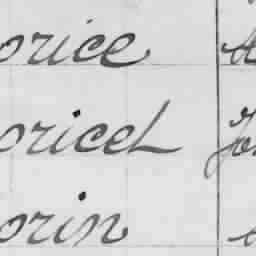 orice
oricel
orin